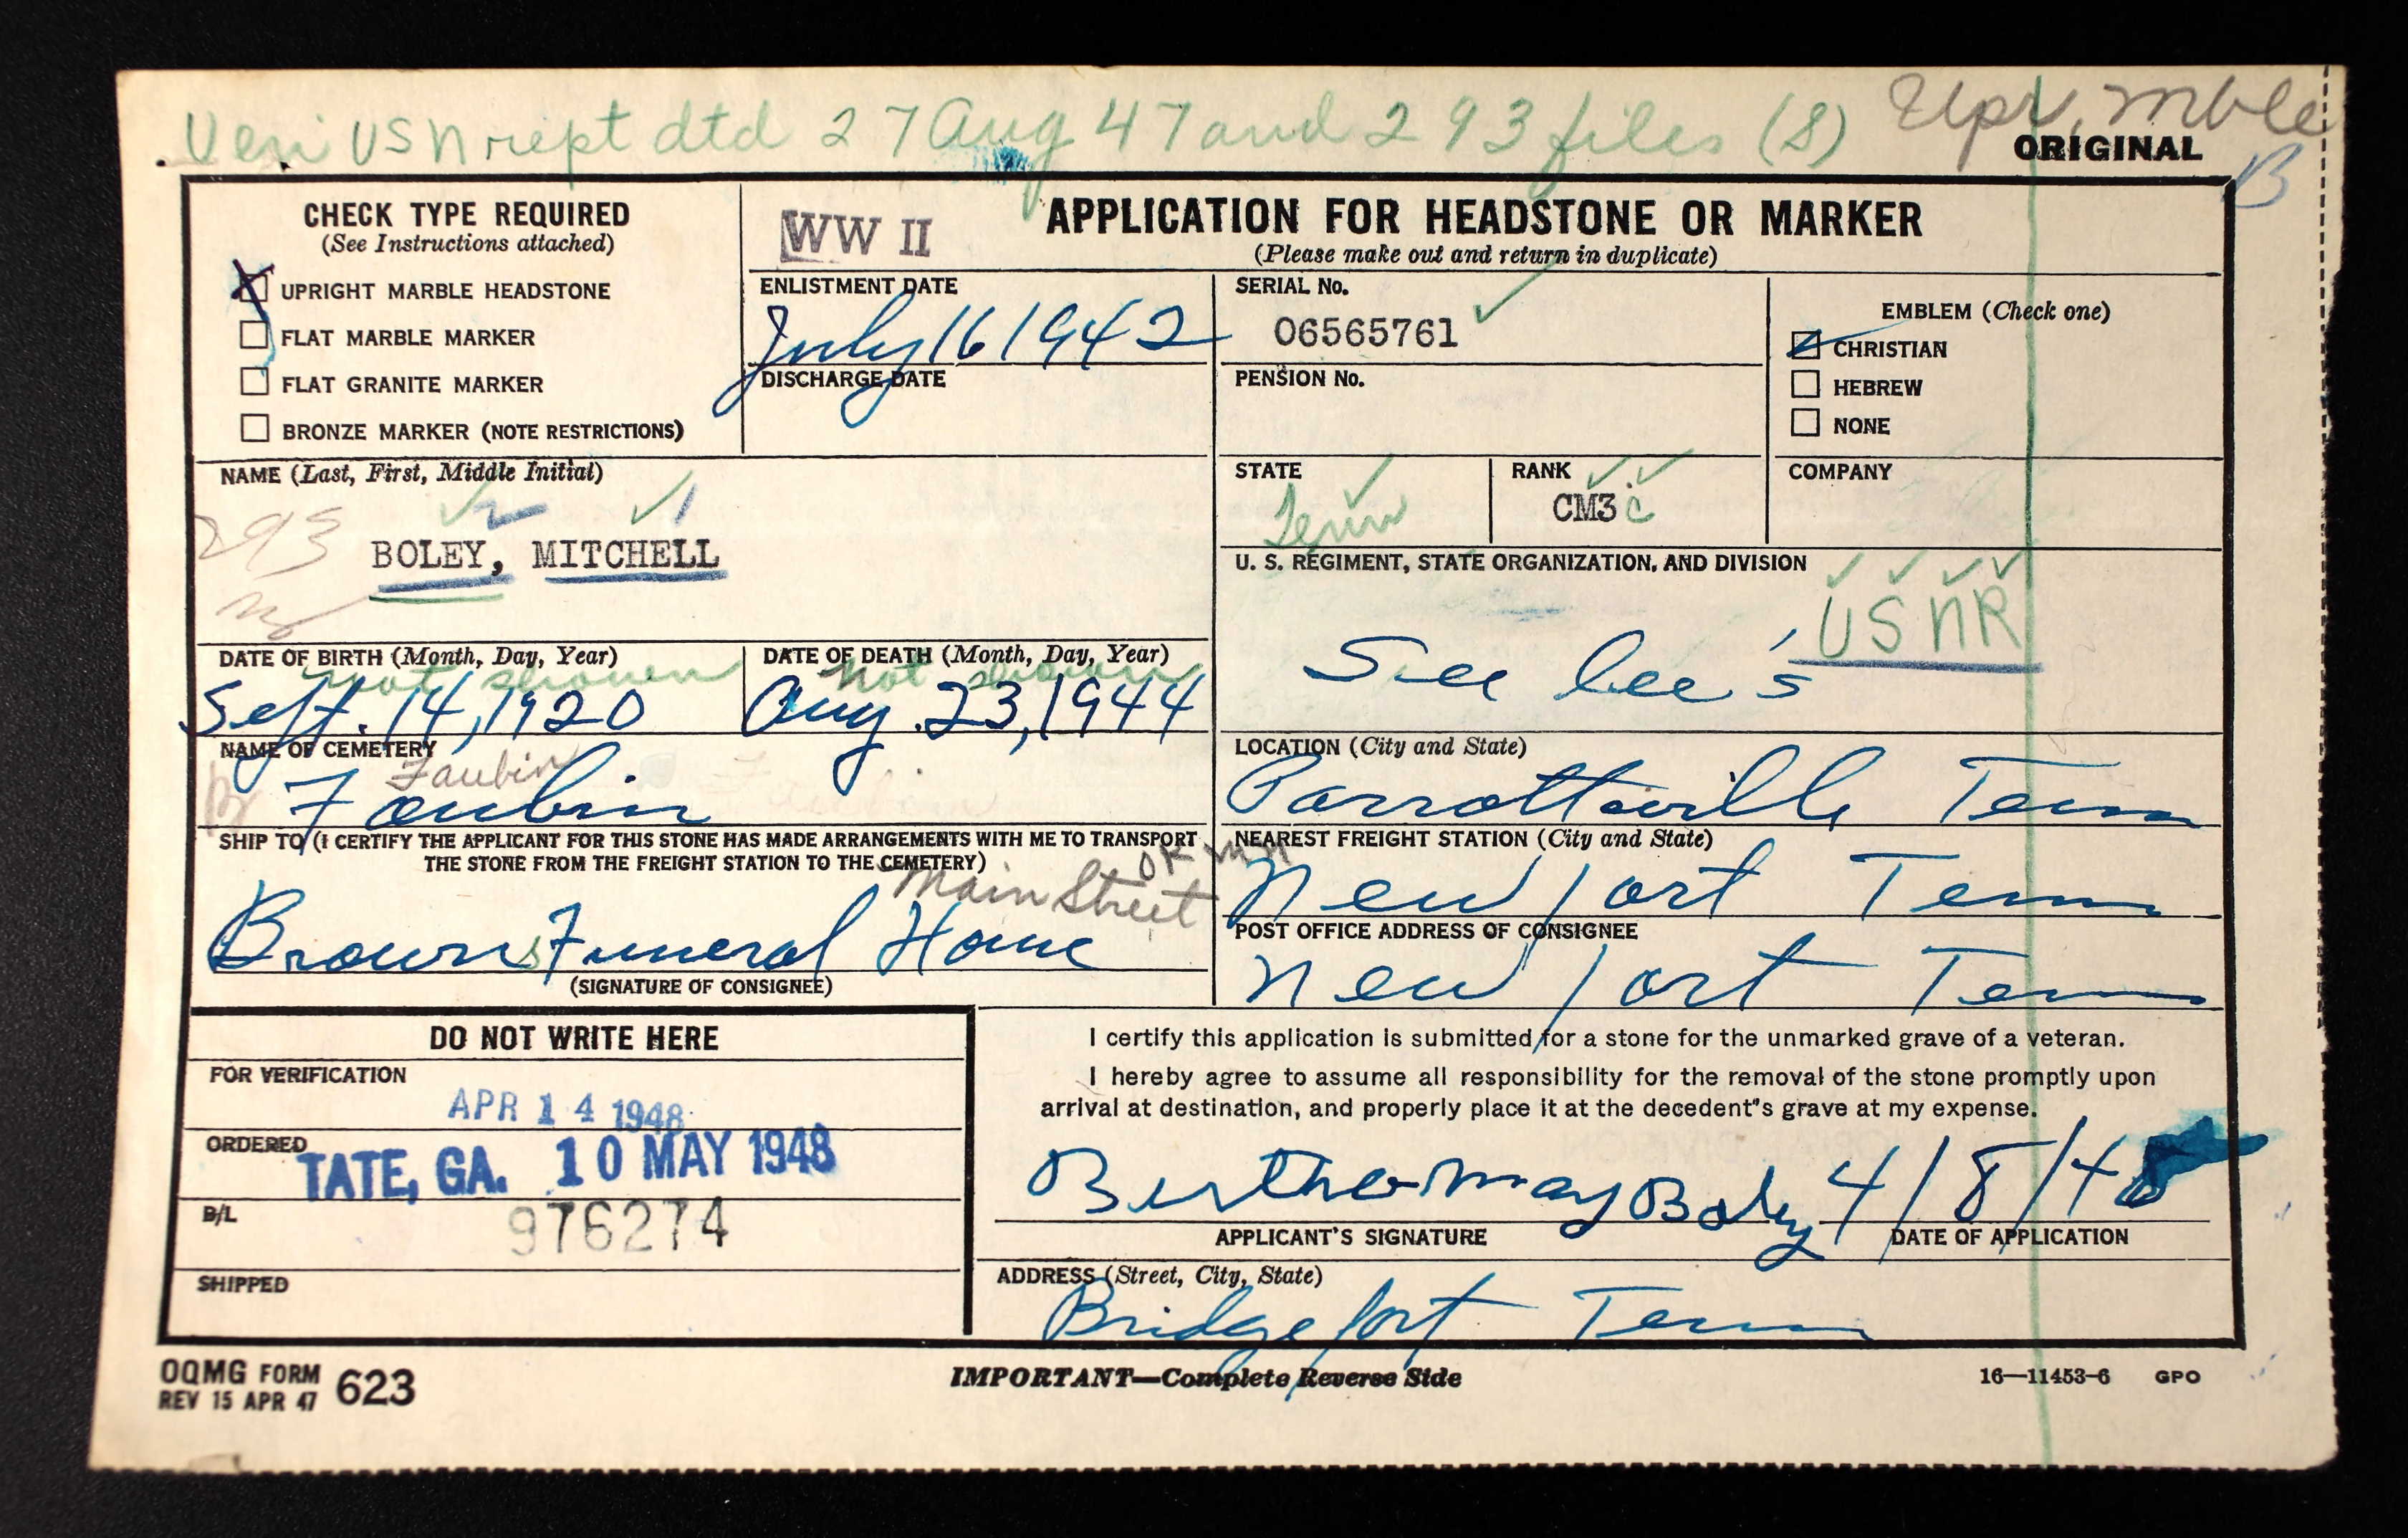 Veri USN rept dtd 27 Aug 47 and 293 files (S) Upr. Mble
ORIGINAL
B
CHECK TYPE REQUIRED
(See Instructions attached)
X UPRIGHT MARBLE HEADSTONE
FLAT MARBLE MARKER
FLAT GRANITE MARKER
BRONZE MARKER (NOTE RESTRICTIONS)
WW II
APPLICATION FOR HEADSTONE OR MARKER
(Please make out and return in duplicate)
ENLISTMENT DATE
July 16 1942
DISCHARGE DATE
SERIAL No.
06565761
PENSION No.
EMBLEM (Check one)
CHRISTIAN
HEBREW
NONE
NAME (Last, First, Middle Initial)
2 1
293
BOLEY, MITCHELL
STATE
Tenn
RANK
CM3c
COMPANY
U. S. REGIMENT, STATE ORGANIZATION, AND DIVISION
USNR
See bee's
DATE OF BIRTH (Month, Day, Year)
not shown
Sept. 14, 1920
DATE OF DEATH (Month, Day, Year)
not shown
Aug. 23, 1944
NAME OF CEMETERY
Faubin
Foubin
LOCATION (City and State)
Parrottsville Tenn
SHIP TO (I CERTIFY THE APPLICANT FOR THIS STONE HAS MADE ARRANGEMENTS WITH ME TO TRANSPORT
THE STONE FROM THE FREIGHT STATION TO THE CEMETERY)
OK
Main Street
Browns Funeral Home
(SIGNATURE OF CONSIGNEE)
NEAREST FREIGHT STATION (City and State)
Newport Tenn
POST OFFICE ADDRESS OF CONSIGNEE
Newport Tenn
DO NOT WRITE HERE
FOR VERIFICATION
APR 14 1948
ORDERED
TATE, GA. 10 MAY 1948
B/L
976274
SHIPPED
I certify this application is submitted for a stone for the unmarked grave of a veteran.
I hereby agree to assume all responsibility for the removal of the stone promptly upon
arrival at destination, and properly place it at the decedent"s grave at my expense.
Bertha May Boley 4/8/48
APPLICANT'S SIGNATURE
DATE OF APPLICATION
ADDRESS (Street, City, State)
Bridgeport Tenn
OQMG FORM 623
REV 15 APR 47
IMPORTANT—Complete Reverse Side
16—11453-6 GPO